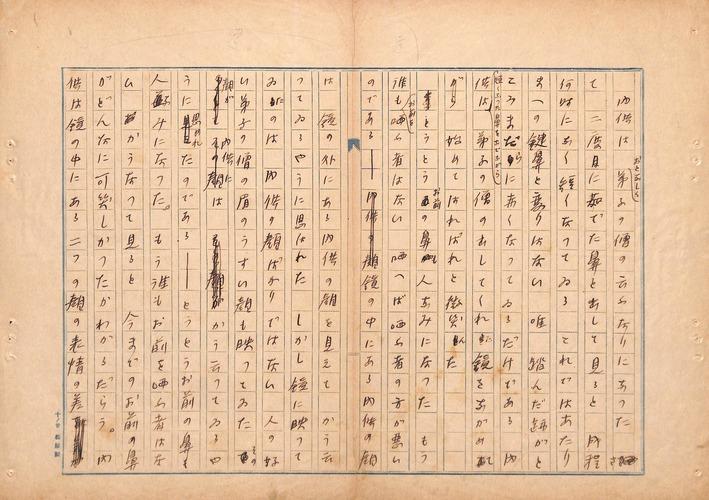 内供は 弟子の僧の云ふなりになつた
おとなしく
て 二度目に茹でた鼻を出して見ると 成程
何時になく 短くなつてゐる これではあたり
まへの鍵鼻と変りはない 唯 踏んだ跡がと
ころまだらに赤くなつてゐるだけである 内
短くなつた鼻を
供は 弟子の僧の出してくれた鏡をながめ
がら 始めてはればれと微笑した
とうとうお前の鼻も人なみになつた もう
誰もお前を哂ふ者はない 哂へば哂ふ者の方が悪い
のである―― 鏡の中にある内供の顔
は 鏡の外にある内供の顔を見て かう云
つてゐるやうに思はれた しかし鏡に映つて
ゐるのは内供の顔ばかりではない 人の好
い弟子の僧の眉のうすい顔も映つてゐた その
顔が 内供に かう云つてゐるや
うに思はれたのである―― とうとうお前の鼻も
人並みになつた。 もう誰もお前を哂ふ者はな
い かうなつて見ると 今までのお前の鼻
がどんなに可笑しかつたかわかるだらう。 内
供は鏡の中にある二つの顔の表情の差